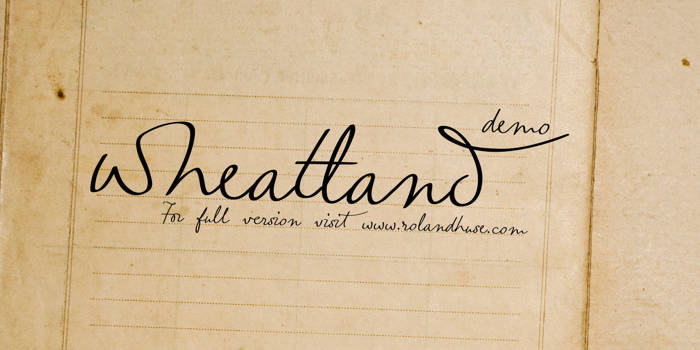 wheatland
demo
For full version visit www.rolandhuse.com